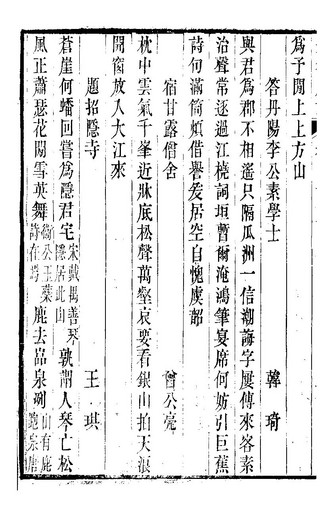 為予閒上上方山
答丹陽李公素學士　韓琦
與君為郡不相遥只隔瓜洲一信潮誨字屢傳來客素
治聲常逐過江橈詞垣暫爾淹鴻筆宴席何妨引巨蕉
詩句滿筒煩借譽爰居空自愧虞韶
宿甘露僧舍　曾公亮
枕中雲氣千峯近牀底松聲萬壑哀要看銀山拍天浪
開窗放入大江來
題招隱寺　王琪
蒼崖何蟠回嘗為隱君宅宋戴禺善琴隱居此山孰謂人琴亡松
風正蕭瑟花開雪英舞公玉蘂詩在焉鹿去嵓泉冽山有鹿跑泉唐